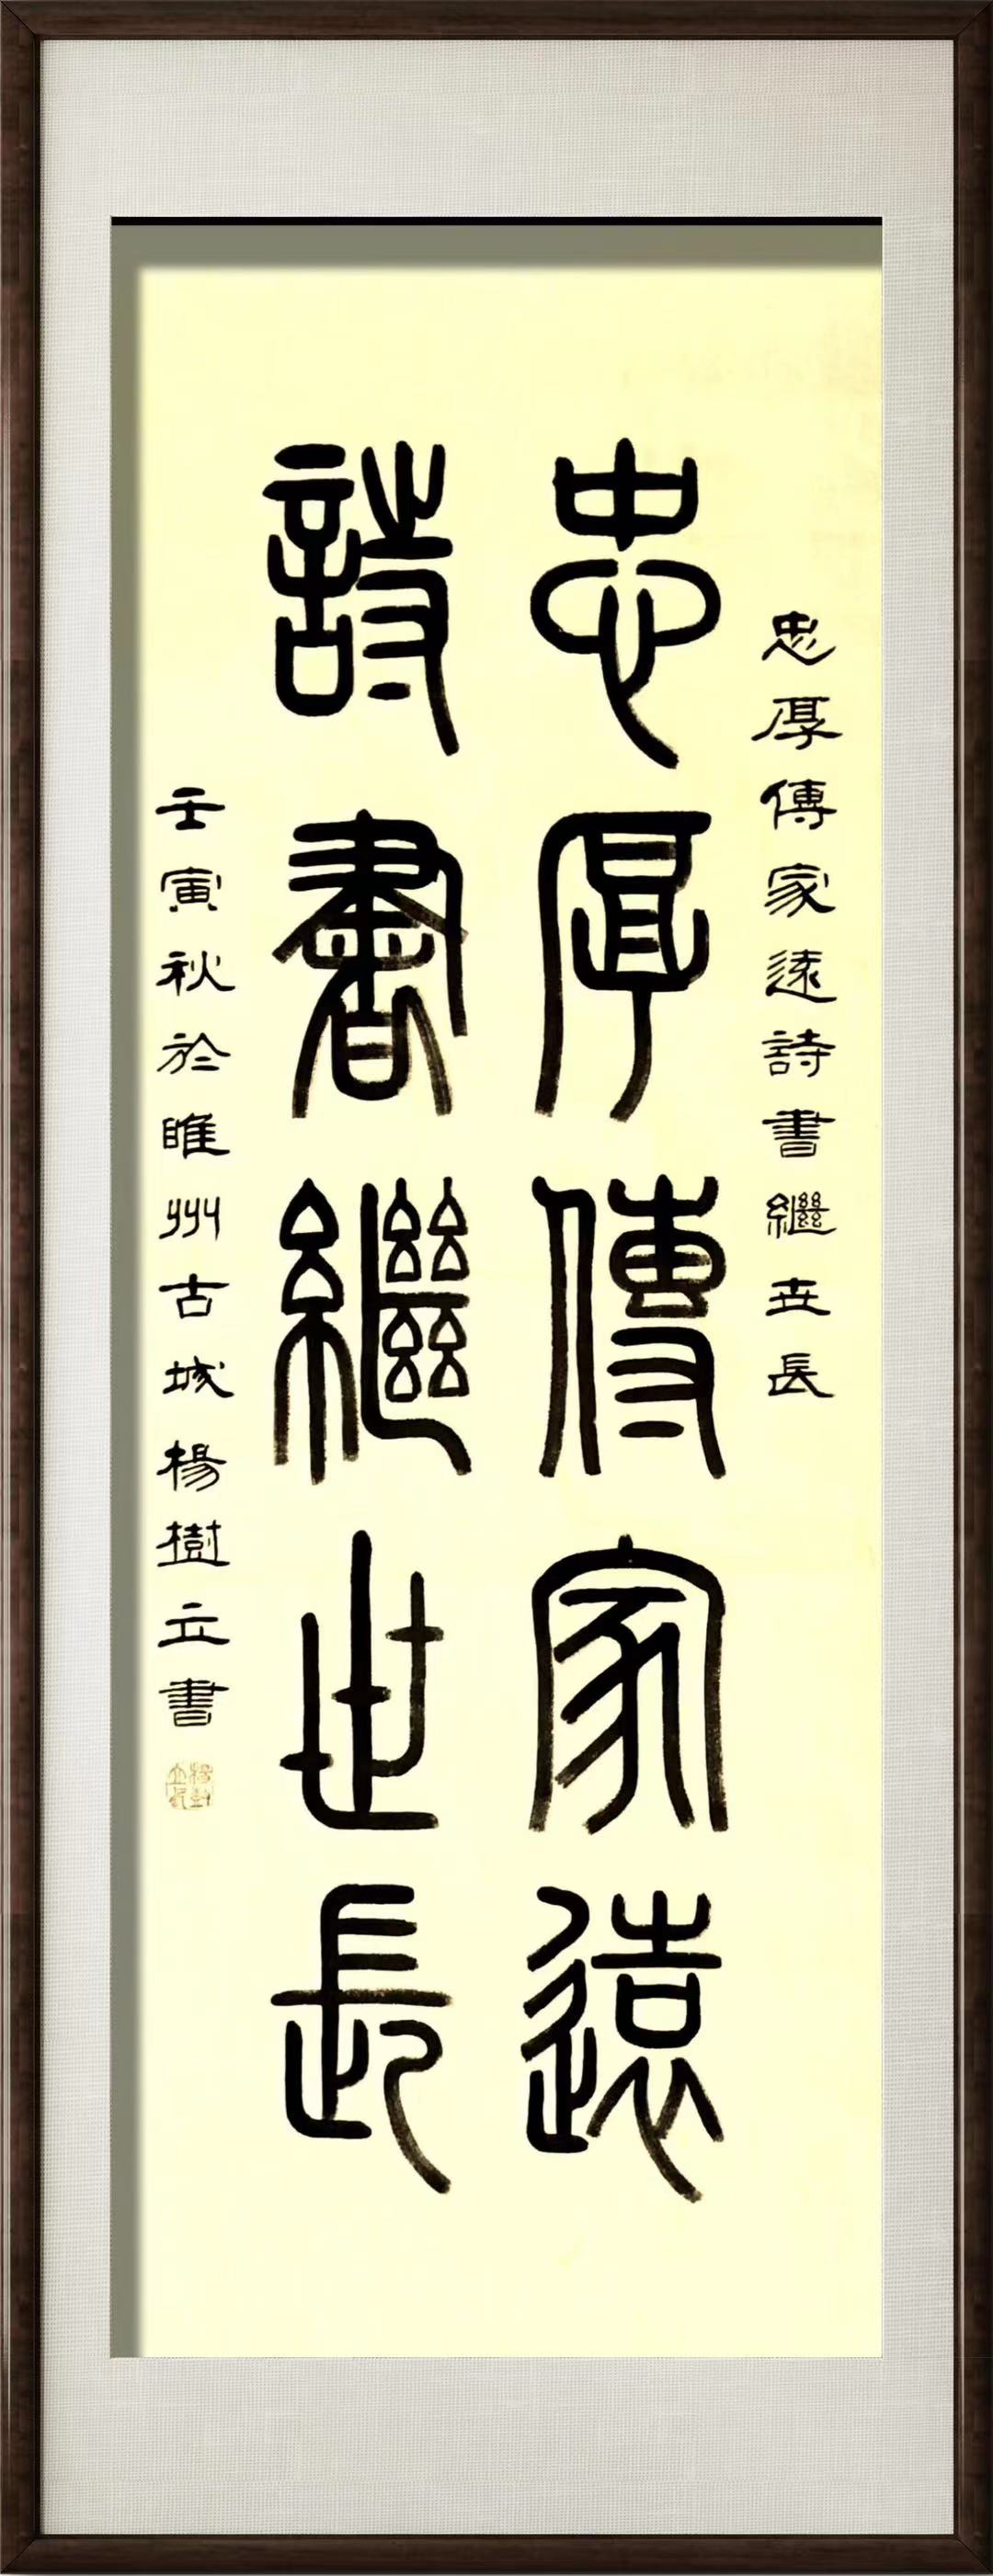 忠厚傳家遠詩書繼世長
忠厚傳家遠
詩書繼世長
壬寅秋於睢州古城楊樹立書